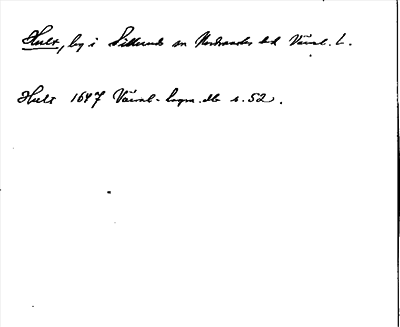 Hult, by i Silleruds sn Nordmarks hd Värml. L.
Hult 1647 Värml. lagm.db s. 52.